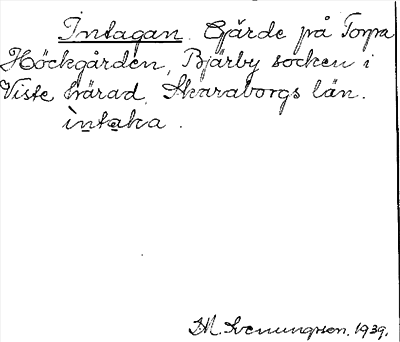 Intagan. Gärde på Torpa
Höckgården, Bjärby socken i
Viste härad, Skaraborgs län.
ìntaka.
M. Svenungsson. 1939.